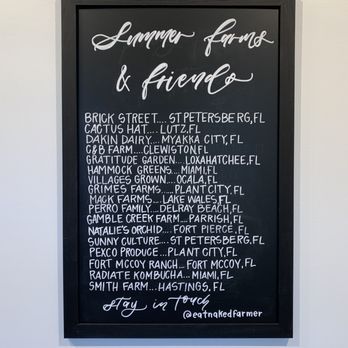 Summer farms
& friends
BRICK STREET.... ST PETERSBERG, FL
CACTUS HAT.... LUTZ, FL
DAKIN DAIRY... MYAKKA CITY, FL
C&B FARM.... CLEWISTON, FL
GRATITUDE GARDEN... LOXAHATCHEE, FL
HAMMOCK GREENS.... MIAMI, FL
VILLAGES GROWN.... OCALA, FL
GRIMES FARMS..... PLANT CITY, FL
MACK FARMS.... LAKE WALES, FL
PERRO FAMILY... DELRAY BEACH, FL
GAMBLE CREEK FARM... PARRISH, FL
NATALIE'S ORCHID... FORT PIERCE, FL
SUNNY CULTURE... ST PETERSBERG, FL
PEXCO PRODUCE... PLANT CITY, FL
FORT MCCOY RANCH... FORT MCCOY, FL
RADIATE KOMBUCHA... MIAMI, FL
SMITH FARM... HASTINGS, FL
stay in touch
@eatnakedfarmer